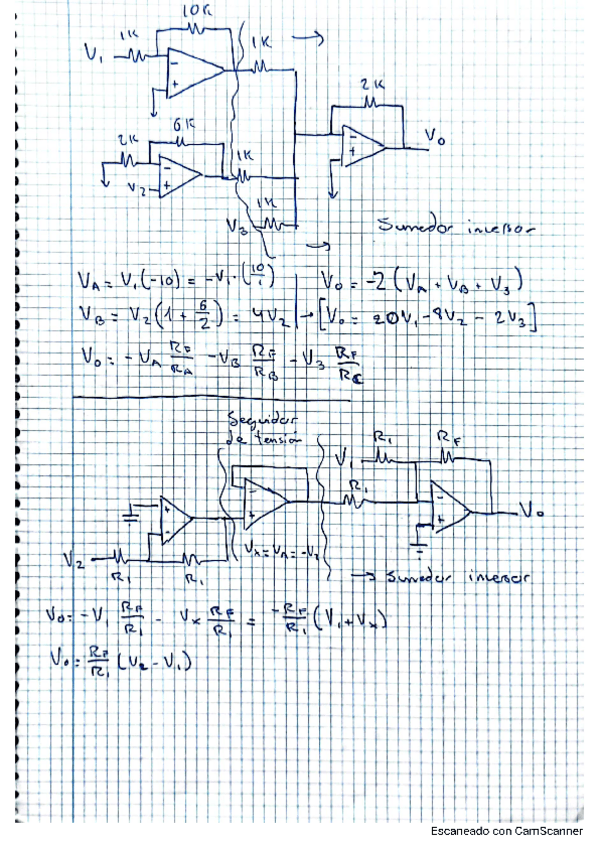 10K
1K
V₁
1K
-
+
2K
6K
2K
-
+
V₀
-
+
V₂
1K
1K
V₃
Sumador inversor
V_A = V₁(-10) = -V₁·(10/1)
V₀ = -2(V_A + V_B + V₃)
V_B = V₂(1 + 6/2) = 4V₂ → [V₀ = 20V₁ - 8V₂ - 2V₃]
V₀ = -V_A R_F/R_A - V_B R_F/R_B - V₃ R_F/R_C
Seguidor
de tensión
R₁
R_F
V₁
-
R₁
+
-
+
V₀
V₂
R₁
R₁
V_x = V_A = -V₂
→ Sumador inversor
V₀ = -V₁ R_F/R₁ - V_x R_F/R₁ = -R_F/R₁ (V₁ + V_x)
V₀ = R_F/R₁ (V₂ - V₁)
Escaneado con CamScanner